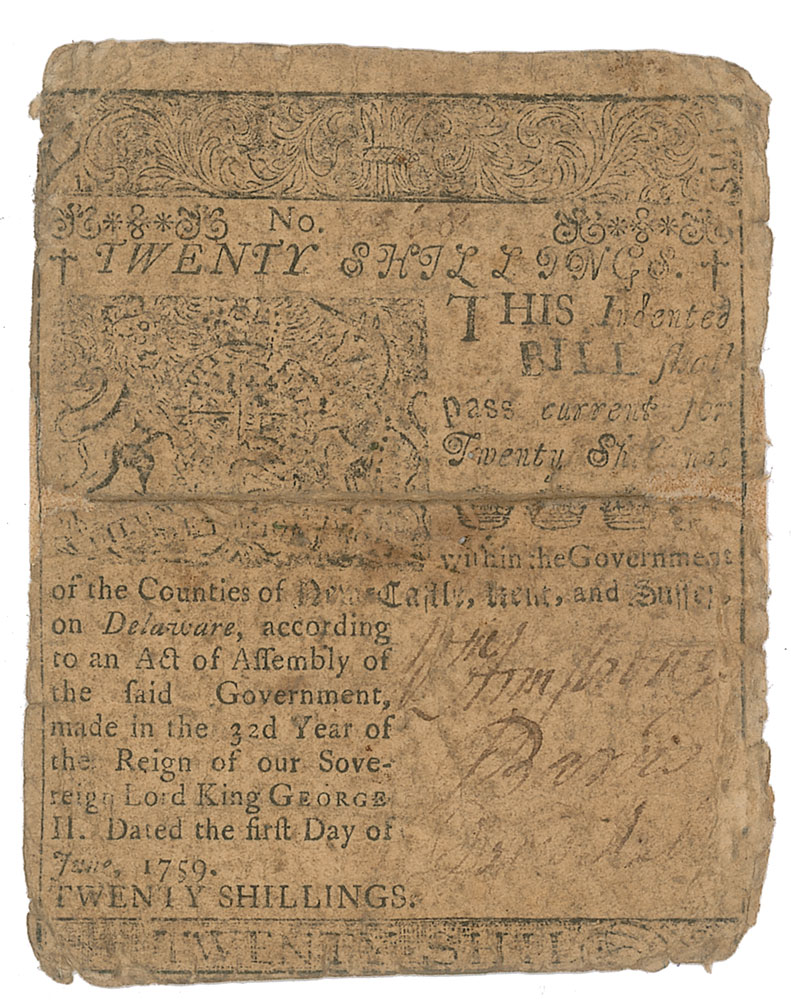 No.
TWENTY SHILLINGS.
THIS Indented
BILL ſhall
paſs current for
Twenty Shillings
within the Government
of the Counties of New-Caſtle, Kent, and Suſſex,
on Delaware, according
to an Act of Aſſembly of
the ſaid Government,
made in the 32d Year of
the Reign of our Sove-
reign Lord King GEORGE
II. Dated the firſt Day of
June, 1759.
TWENTY SHILLINGS.
TWENTY-SHIL